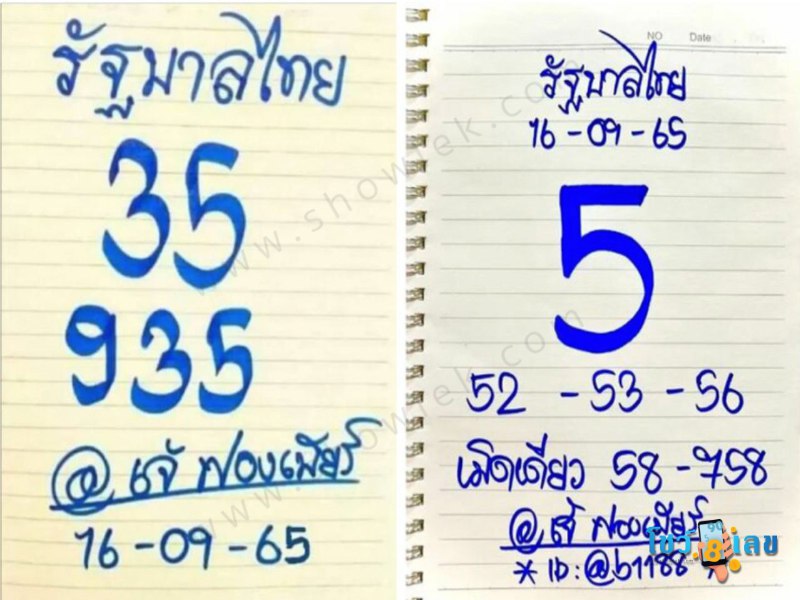 รัฐบาลไทย
35
935
@ เจ๊ฟองเบียร์
16-09-65
NO Date
รัฐบาลไทย
16-09-65
5
52 - 53 - 56
เม็ดเดียว 58 - 758
@ เจ๊ ฟองเบียร์
* ID: @b1188 *
โชว์เลข
www.showlek.com
www.showlek.com